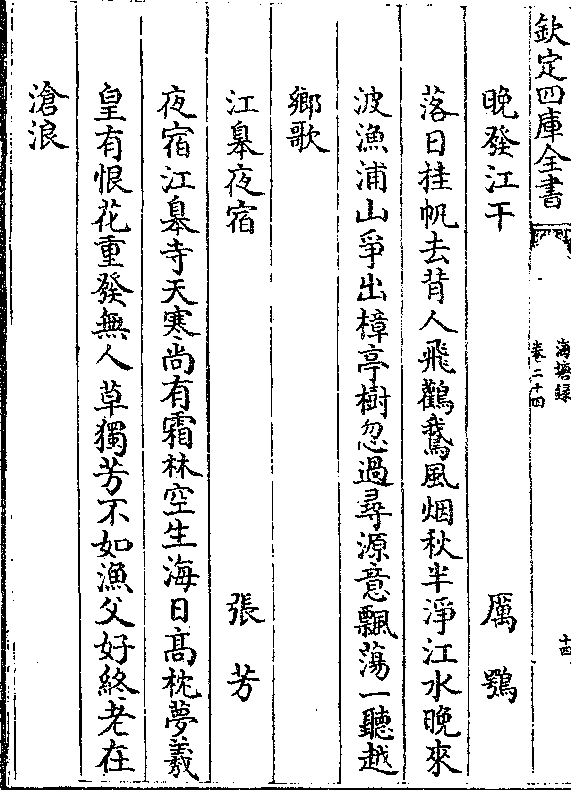 欽定四庫全書
海塘録
卷二十四
十四
晚發江干
厲鶚
落日挂帆去背人飛鸛鵞風烟秋半淨江水晚來
波漁浦山爭出樟亭樹忽過尋源意飄蕩一聽越
鄉歌
江臯夜宿
張芳
夜宿江臯寺天寒尚有霜林空生海日髙枕夢羲
皇有恨花重發無人草獨芳不如漁父好終老在
滄浪